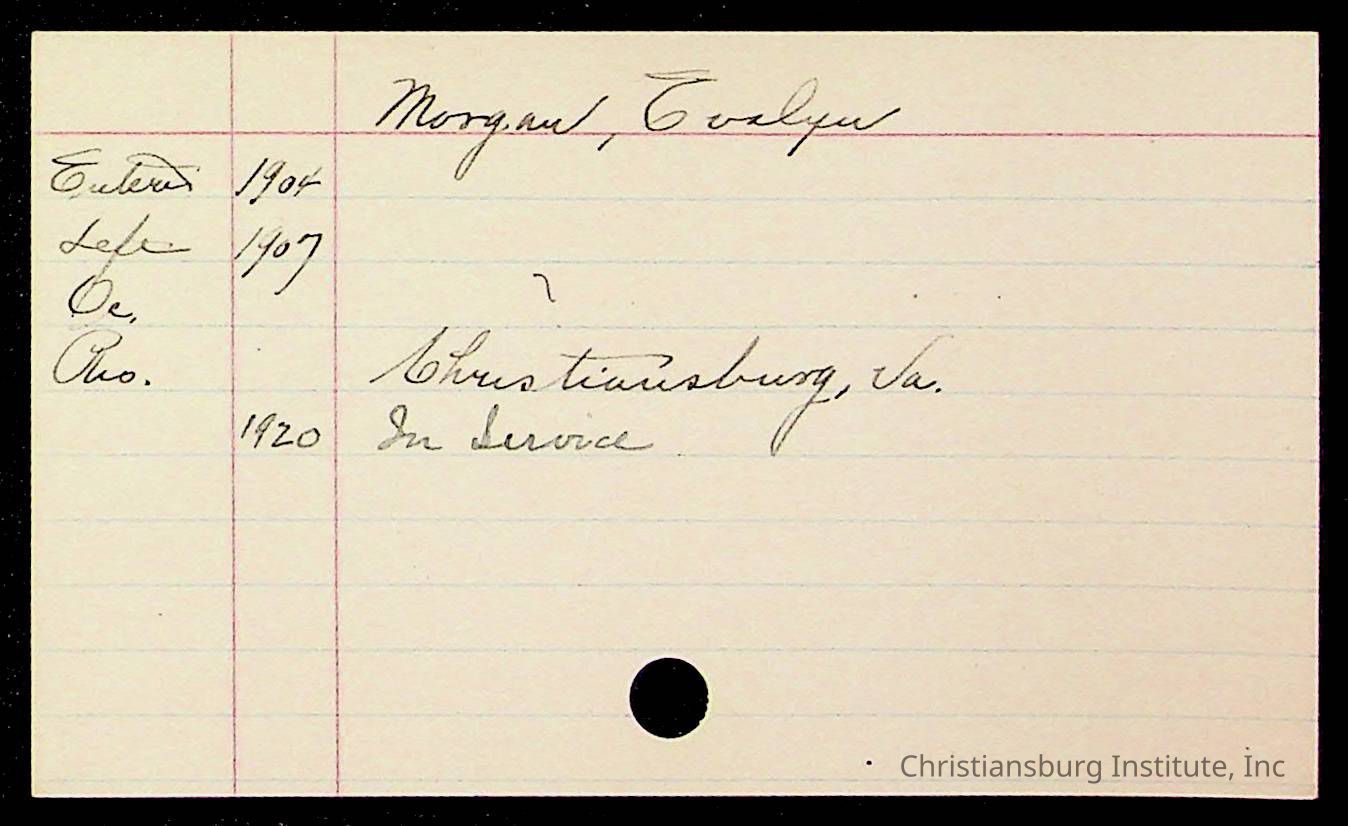 Morgan, Evalyn
Entered 1904
Left 1907
Oc.
Christiansburg, Va.
1920 In Service
Christiansburg Institute, Inc